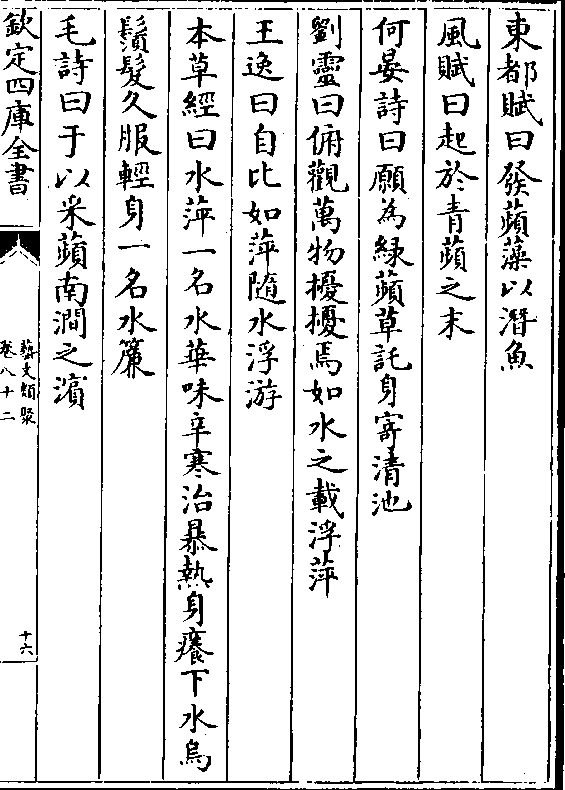 東都賦曰發蘋藻以潛魚
風賦曰起於青蘋之末
何晏詩曰願為緑蘋草託身寄清池
劉靈曰俯觀萬物擾擾焉如水之載浮萍
王逸曰自比如萍隨水浮游
本草經曰水萍一名水華味辛寒治暴熱身癢下水烏
鬚髮久服輕身一名水簾
毛詩曰于以采蘋南澗之濱
欽定四庫全書
藝文類聚
卷八十二
十六